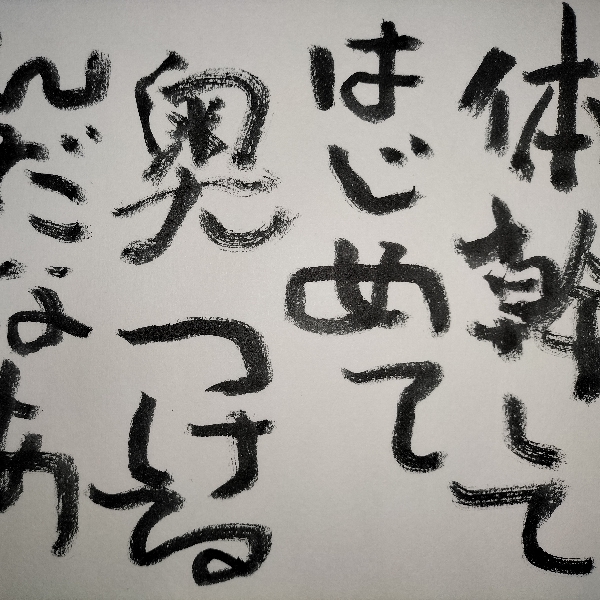 体幹して
はじめて
奥つける
んだなあ